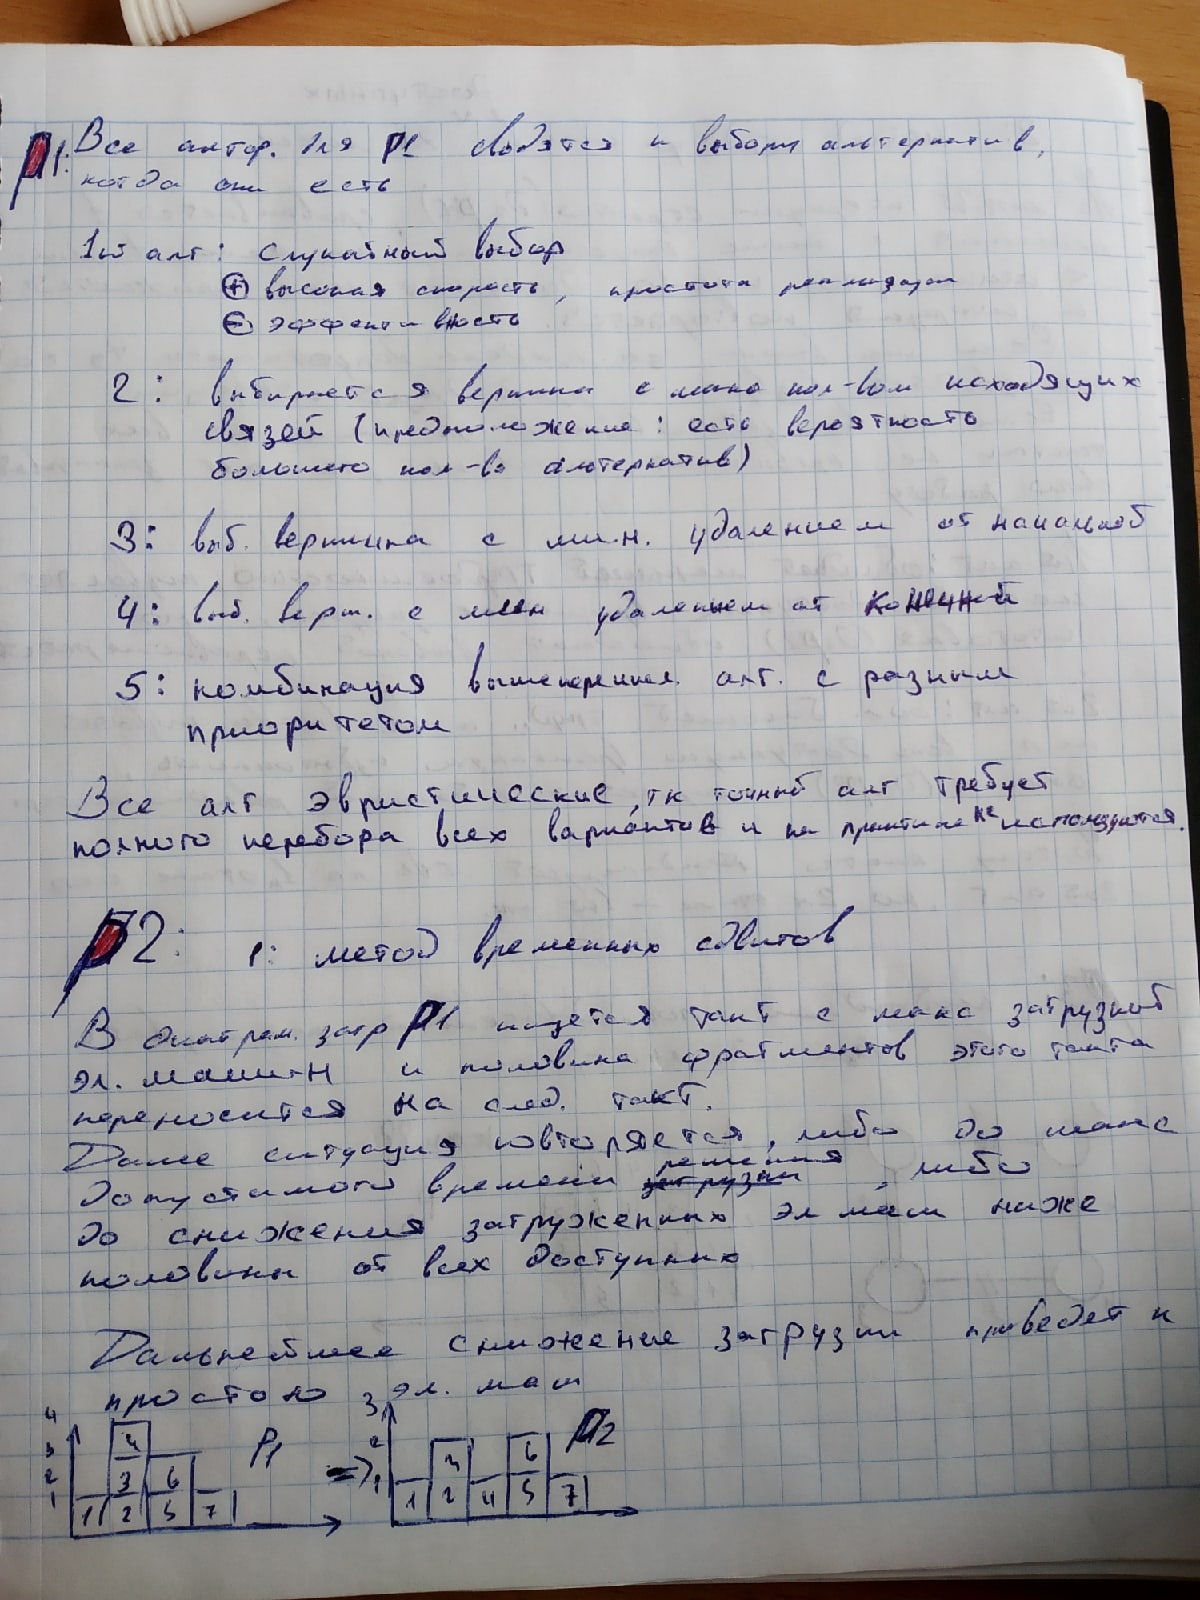 P1: Все алгор. для P1 сводятся к выбору альтернатив,
когда они есть
1ый алг: случайный выбор
⊕ высокая скорость, простота реализации
⊖ эффективность
2: выбирается вершина с макс кол-вом исходящих
связей (предположение: есть вероятность
большего кол-ва альтернатив)
3: выб. вершина с мин. удалением от начальной
4: выб. верш. с мин удалением от конечной
5: комбинация вышеперечисл. алг. с разным
приоритетом
Все алг эвристические, тк точный алг требует
полного перебора всех вариантов и на практике не используются.
P2: 1: метод временных сдвигов
В диаграм. загр P1 ищется такт с макс загрузкой
эл. машин и половина фрагментов этого такта
переносится на след. такт.
Далее ситуация повторяется, либо до макс
допустимого времени решения, либо
до снижения загруженных эл маш ниже
половины от всех доступных
Дальнейшее снижение загрузки приведет к
простою эл. маш
4 3 2 1
4
3 6
1 2 5 7
P1
=>
3 2 1
3 6
1 2 4 5 7
P2